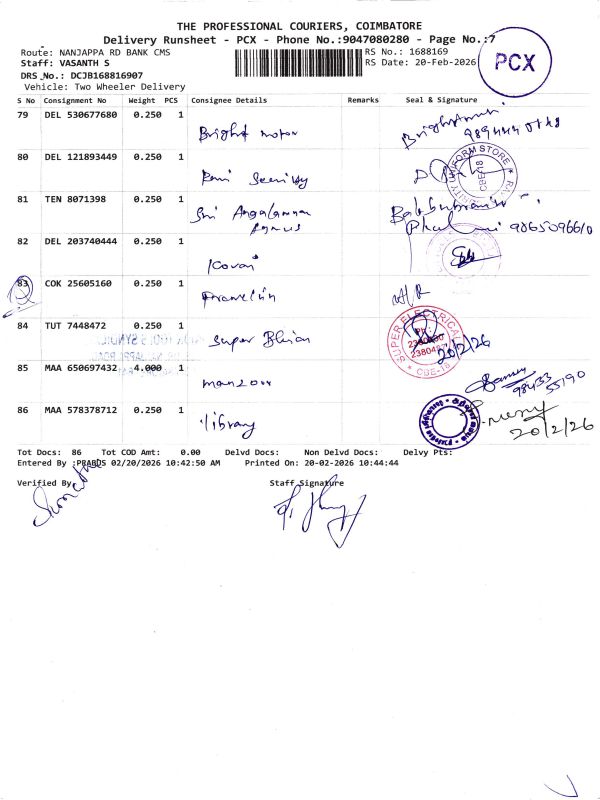 THE PROFESSIONAL COURIERS, COIMBATORE
Delivery Runsheet - PCX - Phone No.:9047080280 - Page No.:7
PCX
Route: NANJAPPA RD BANK CMS
RS No.: 1688169
Staff: VASANTH S
RS Date: 20-Feb-2026
DRS No.: DCJB168816907
Vehicle: Two Wheeler Delivery
S No Consignment No Weight PCS Consignee Details Remarks Seal & Signature
79 DEL 530677680 0.250 1
Bright motor
80 DEL 121893449 0.250 1
UNITY UNIFORM STORE
CBE-18
81 TEN 8071398 0.250 1
Sri Angalamman
9865096610
82 DEL 203740444 0.250 1
Kovai
83 COK 25605160 0.250 1
Franklin
84 TUT 7448472 0.250 1
Super
SUPER ELECTRICAL
Ph :
2380487
CBE-18
20/2/26
85 MAA 650697432 4.000 1
manzoor
98433
55190
86 MAA 578378712 0.250 1
library
20/2/26
Tot Docs: 86 Tot COD Amt: 0.00 Delvd Docs: Non Delvd Docs: Delvy Pts:
Entered By :PRABDS 02/20/2026 10:42:50 AM Printed On: 20-02-2026 10:44:44
Verified By
Staff Signature